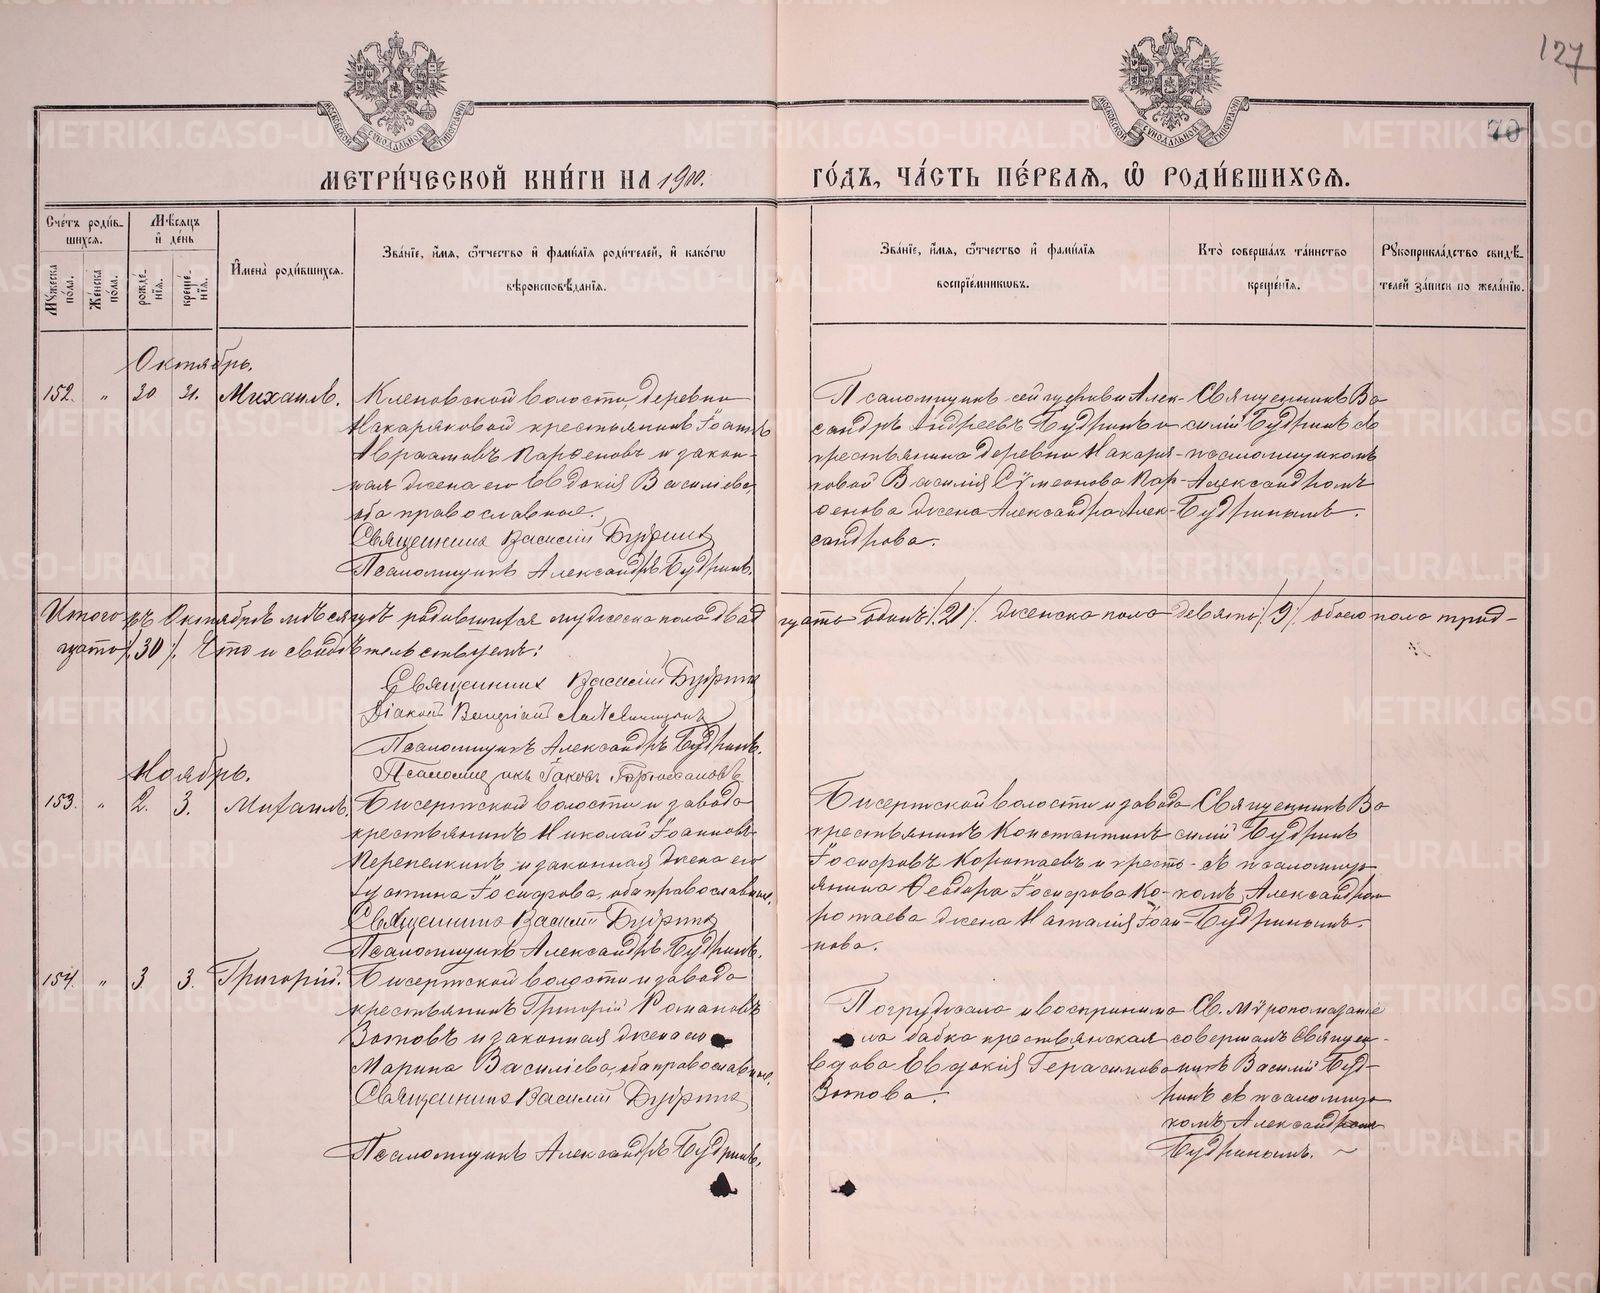 127
70
МЕТРИ́ЧЕСКОЙ КНИ́ГИ НА 1900. ГО́ДЪ, ЧА́СТЬ ПЕ́РВАѦ, Ѡ҆ РОДИ́ВШИХСѦ.
Сче́тъ роди́в-
шихсѧ.
Мѣ́сѧцъ
и҆ де́нь
Мꙋ́жеска по́ла.
Же́нска по́ла.
рожде́-
нїѧ.
креще́-
нїѧ.
И҆мена̀ роди́вшихсѧ.
Зва́нїе, и҆́мѧ, ѻ҆́тчество и҆ фами́лїѧ роди́телей, и҆ како́гѡ
вѣроисповѣ́данїѧ.
Зва́нїе, и҆́мѧ, ѻ҆́тчество и҆ фами́лїѧ
воспрїе́мникѡвъ.
Кто̀ соверша́лъ та́инство
креще́нїѧ.
Рꙋкоприкла́дство свидѣ́-
телей за́писи по жела́нїю.
Октябрь.
152. " 20 21. Михаилъ.
Кленовской волости, деревни
Накаряковой крестьянинъ Іоаннъ
Авраамовъ Парѳеновъ и закон-
ная жена его Евдокія Василіева,
оба православные.
Священникъ Василій Будринъ
Псаломщикъ Александръ Будринъ.
Псаломщикъ сей церкви Алек-
сандръ Андреевъ Будринъ и
крестьянина деревни Накаря-
ковой Василія Сѵмеонова Пар-
ѳенова жена Александра Алек-
сандрова.
Священникъ Ва
силій Будринъ съ
псаломщикомъ
Александромъ
Будринымъ.
Итого въ Октябрѣ мѣсяцѣ родившихся мужеска пола двад цать одинъ /21/. женска пола девять /9/ обоего пола трид-
цать /30/. Что и свидѣтельствуемъ:
Священникъ Василій Будринъ
Діаконъ Валеріанъ
Псаломщикъ Александръ Будринъ.
Псаломщикъ Іаковъ
Ноябрь.
153. " 2. 3. Михаилъ.
Бисертской волости и завода
крестьянинъ Николай Іоанновъ
Перепелкинъ и законная жена его
Іустина Іосифова, оба православные.
Священникъ Василій Будринъ
Псаломщикъ Александръ Будринъ.
Бисертской волости и завода
крестьянинъ Константинъ
Іосифовъ Коротаевъ и кресть-
янина Ѳеодора Іосифова Ко-
ротаева жена Наталія Іоан-
нова.
Священникъ Ва
силій Будринъ
съ псаломщи
комъ Александром
Будринымъ.
154. " 3 3. Григорій.
Бисертской волости и завода
крестьянинъ Григорій Романовъ
Зотовъ и законная жена его
Марина Василіева, оба православные.
Священникъ Василій Будринъ
Псаломщикъ Александръ Будринъ.
Погружала и воспринима
ла бабка крестьянская
вдова Евдокія Герасимова
Зотова.
Св. мѵропомазаніе
совершалъ Священ-
никъ Василій Буд-
ринъ съ псаломщи
комъ Александром
Будринымъ.
METRIKI.GASO-URAL.RU